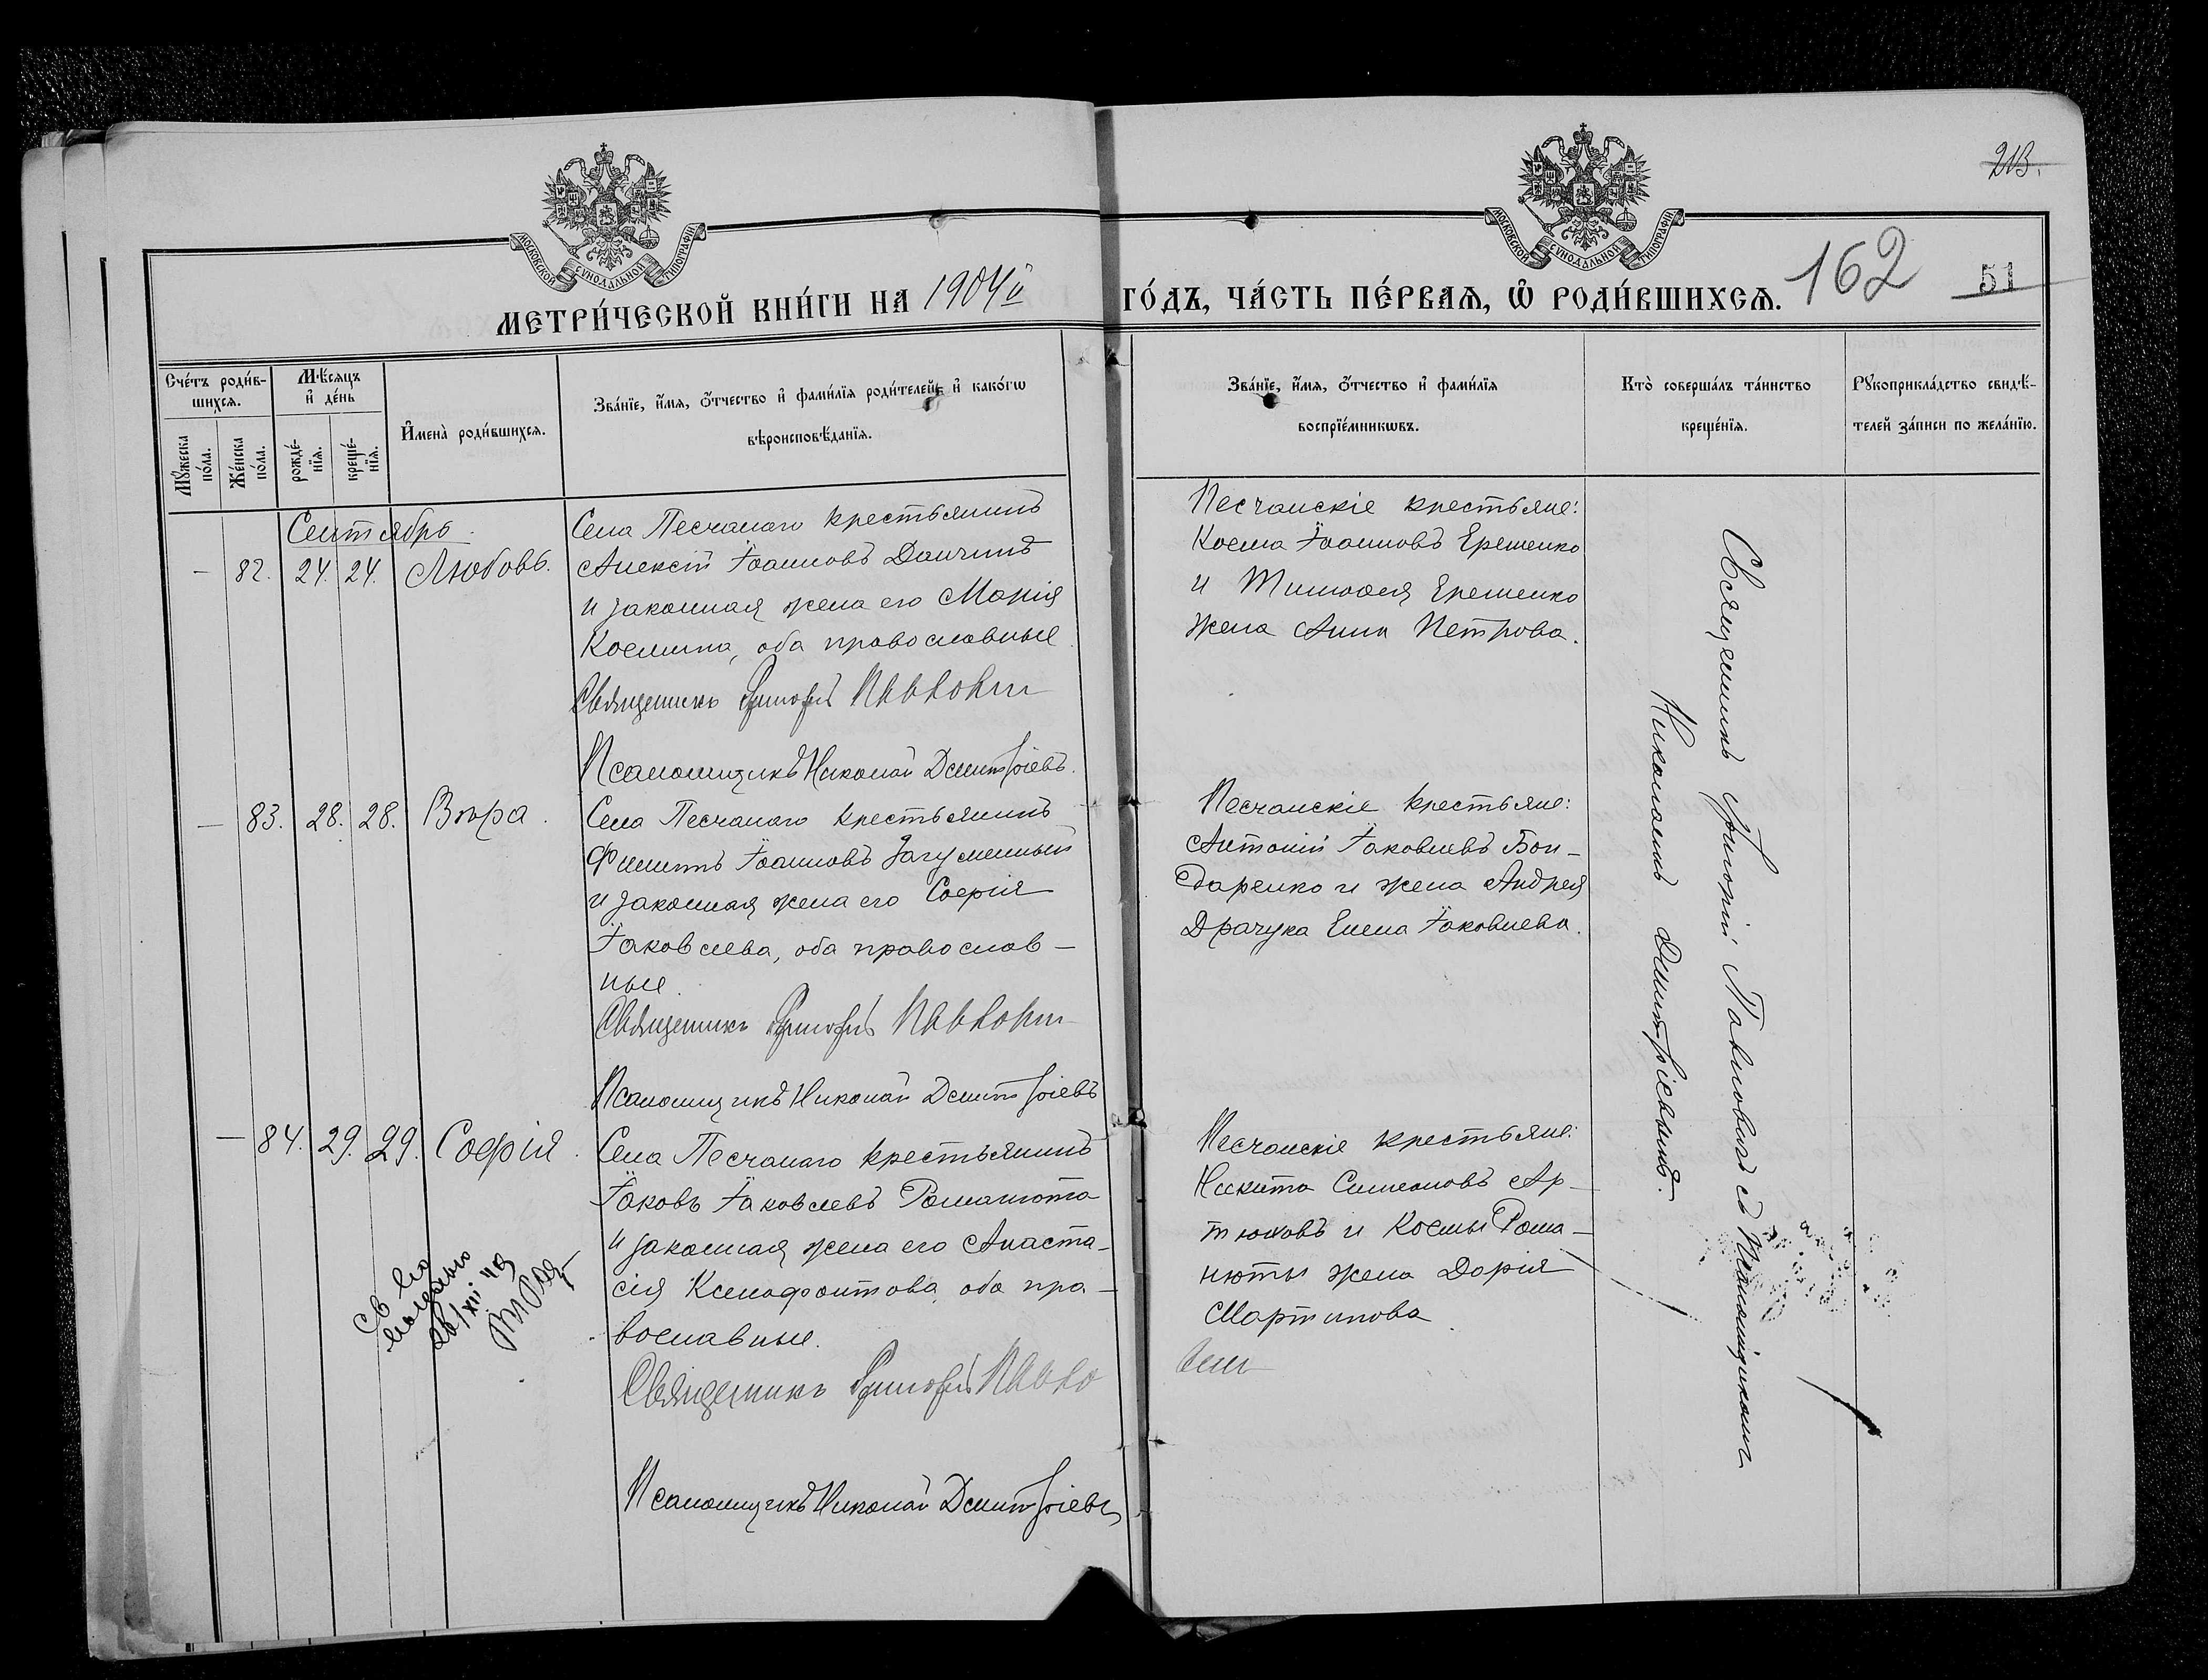 213.
МОСКОВСКОЙ СѴНОДАЛЬНОЙ ТИПОГРАФІИ
МОСКОВСКОЙ СѴНОДАЛЬНОЙ ТИПОГРАФІИ
МЕТРИ́ЧЕСКОЙ КНИ́ГИ НА 1904й ГО́ДЪ, ЧА́СТЬ ПЕ́РВАЯ, Ѡ РОДИ́ВШИХСЯ.
162
51
Сче́тъ роди́в-
шихся.
Мѣ́сяцъ
и҆ де́нь
Мꙋ́жеска
по́ла.
Же́нска
по́ла.
рожде́-
нїя.
креще́-
нїя.
И҆мена̀ роди́вшихся.
Зва́нїе, и҆́мя, ѻ҆́тчество и҆ фами́лїя роди́телей, и҆ како́гѡ
вѣроисповѣ́данїя.
Зва́нїе, и҆́мя, ѻ҆́тчество и҆ фами́лїя
воспрїе́мникѡвъ.
Кто̀ соверша́лъ та́инство
креще́нїя.
Рꙋкоприкла́дство свидѣ́-
телей за́писи по жела́нїю.
Сентябрь.
— 82. 24. 24. Любовь.
Села Песчанаго крестьянинъ
Алексѣй Іоанновъ Данчинъ
и законная жена его Марія
Космина, оба православные
Священникъ Григорій Павлович
Псаломщикъ Николай Дмитріевъ.
Песчанскіе крестьяне:
Косма Іоанновъ Ерешенко
и Тимофея Ерешенко
жена Анна Петрова.
— 83. 28. 28. Вѣра.
Села Песчанаго крестьянинъ
Филиппъ Іоанновъ Загуменный
и законная жена его Софія
Іаковлева, оба православ—
ные.
Священникъ Григорій Павлович
Псаломщикъ Николай Дмитріевъ
Песчанскіе крестьяне:
Антоній Іаковлевъ Бон—
даренко и жена Андрея
Драчука Елена Іаковлева.
— 84. 29. 29. Софія.
Села Песчанаго крестьянинъ
Іаковъ Іаковлевъ Романюта
и законная жена его Анаста—
сія Ксенофонтова, оба пра—
вославные.
Священникъ Григорій Павло
вич
Псаломщикъ Николай Дмитріевъ
Песчанскіе крестьяне:
Никита Симеоновъ Ар—
тюховъ и Космы Рома—
нюты жена Дарія
Мартинова
Священникъ Григорій Павловичъ съ Псаломщикомъ
Николаемъ Дмитріевымъ.
св во
выдано
26/XII 49